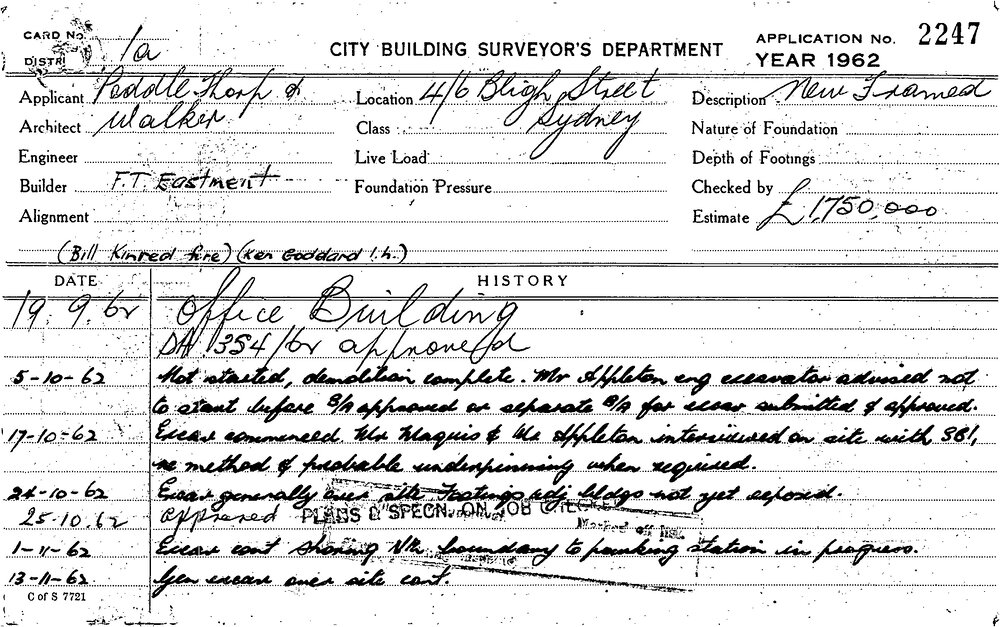 CARD No. 1a
CITY BUILDING SURVEYOR'S DEPARTMENT
APPLICATION No. 2247
DISTRI
YEAR 1962
Applicant Peddle Thorp &
Location 4/6 Bligh Street
Description New Framed
Architect Walker
Class Sydney
Nature of Foundation
Engineer
Live Load
Depth of Footings
Builder F.T. Eastment
Foundation Pressure
Checked by
Alignment
Estimate £1,750,000
(Bill Kinred fire) (Ken Goddard l.h.)
DATE HISTORY
19.9.62 Office Building
DA 1354/62 approved
5-10-62 Not started, demolition complete. Mr Appleton eng excavator advised not
to start before B/A approved or separate B/A for excav submitted & approved.
17-10-62 Excav commenced Mr Maquis & Mr Appleton interviewed on site with SBI,
re method of probable underpinning when required.
24-10-62 Excav generally over site Footings adj bldgs not yet exposed.
25.10.62 approved PLANS & SPECN. ON JOB
Marked off
1-11-62 Excav cont shoring Nth boundary to parking station in progress.
13-11-62 Gen excav over site cont.
C of S 7721